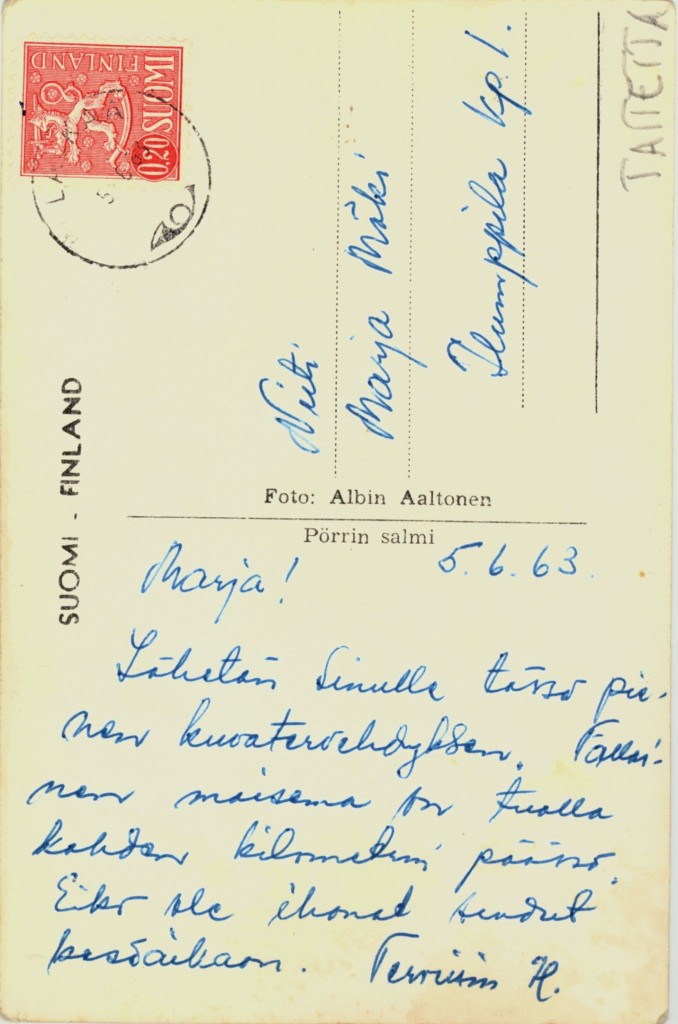 SUOMI
FINLAND
0,20
SUOMI - FINLAND
Neiti
Marja Mäki
Humppila kp. 1.
TAITETTA
Foto: Albin Aaltonen
Pörrin salmi
5.6.63.
Marja!
Lähetän Sinulle tässä pie-
nen kuvatervehdyksen. Tällai-
nen maisema on tuolla
kahden kilometrin päässä.
Eikö ole ihanat seudut
kesäaikaan. Terveisin H.